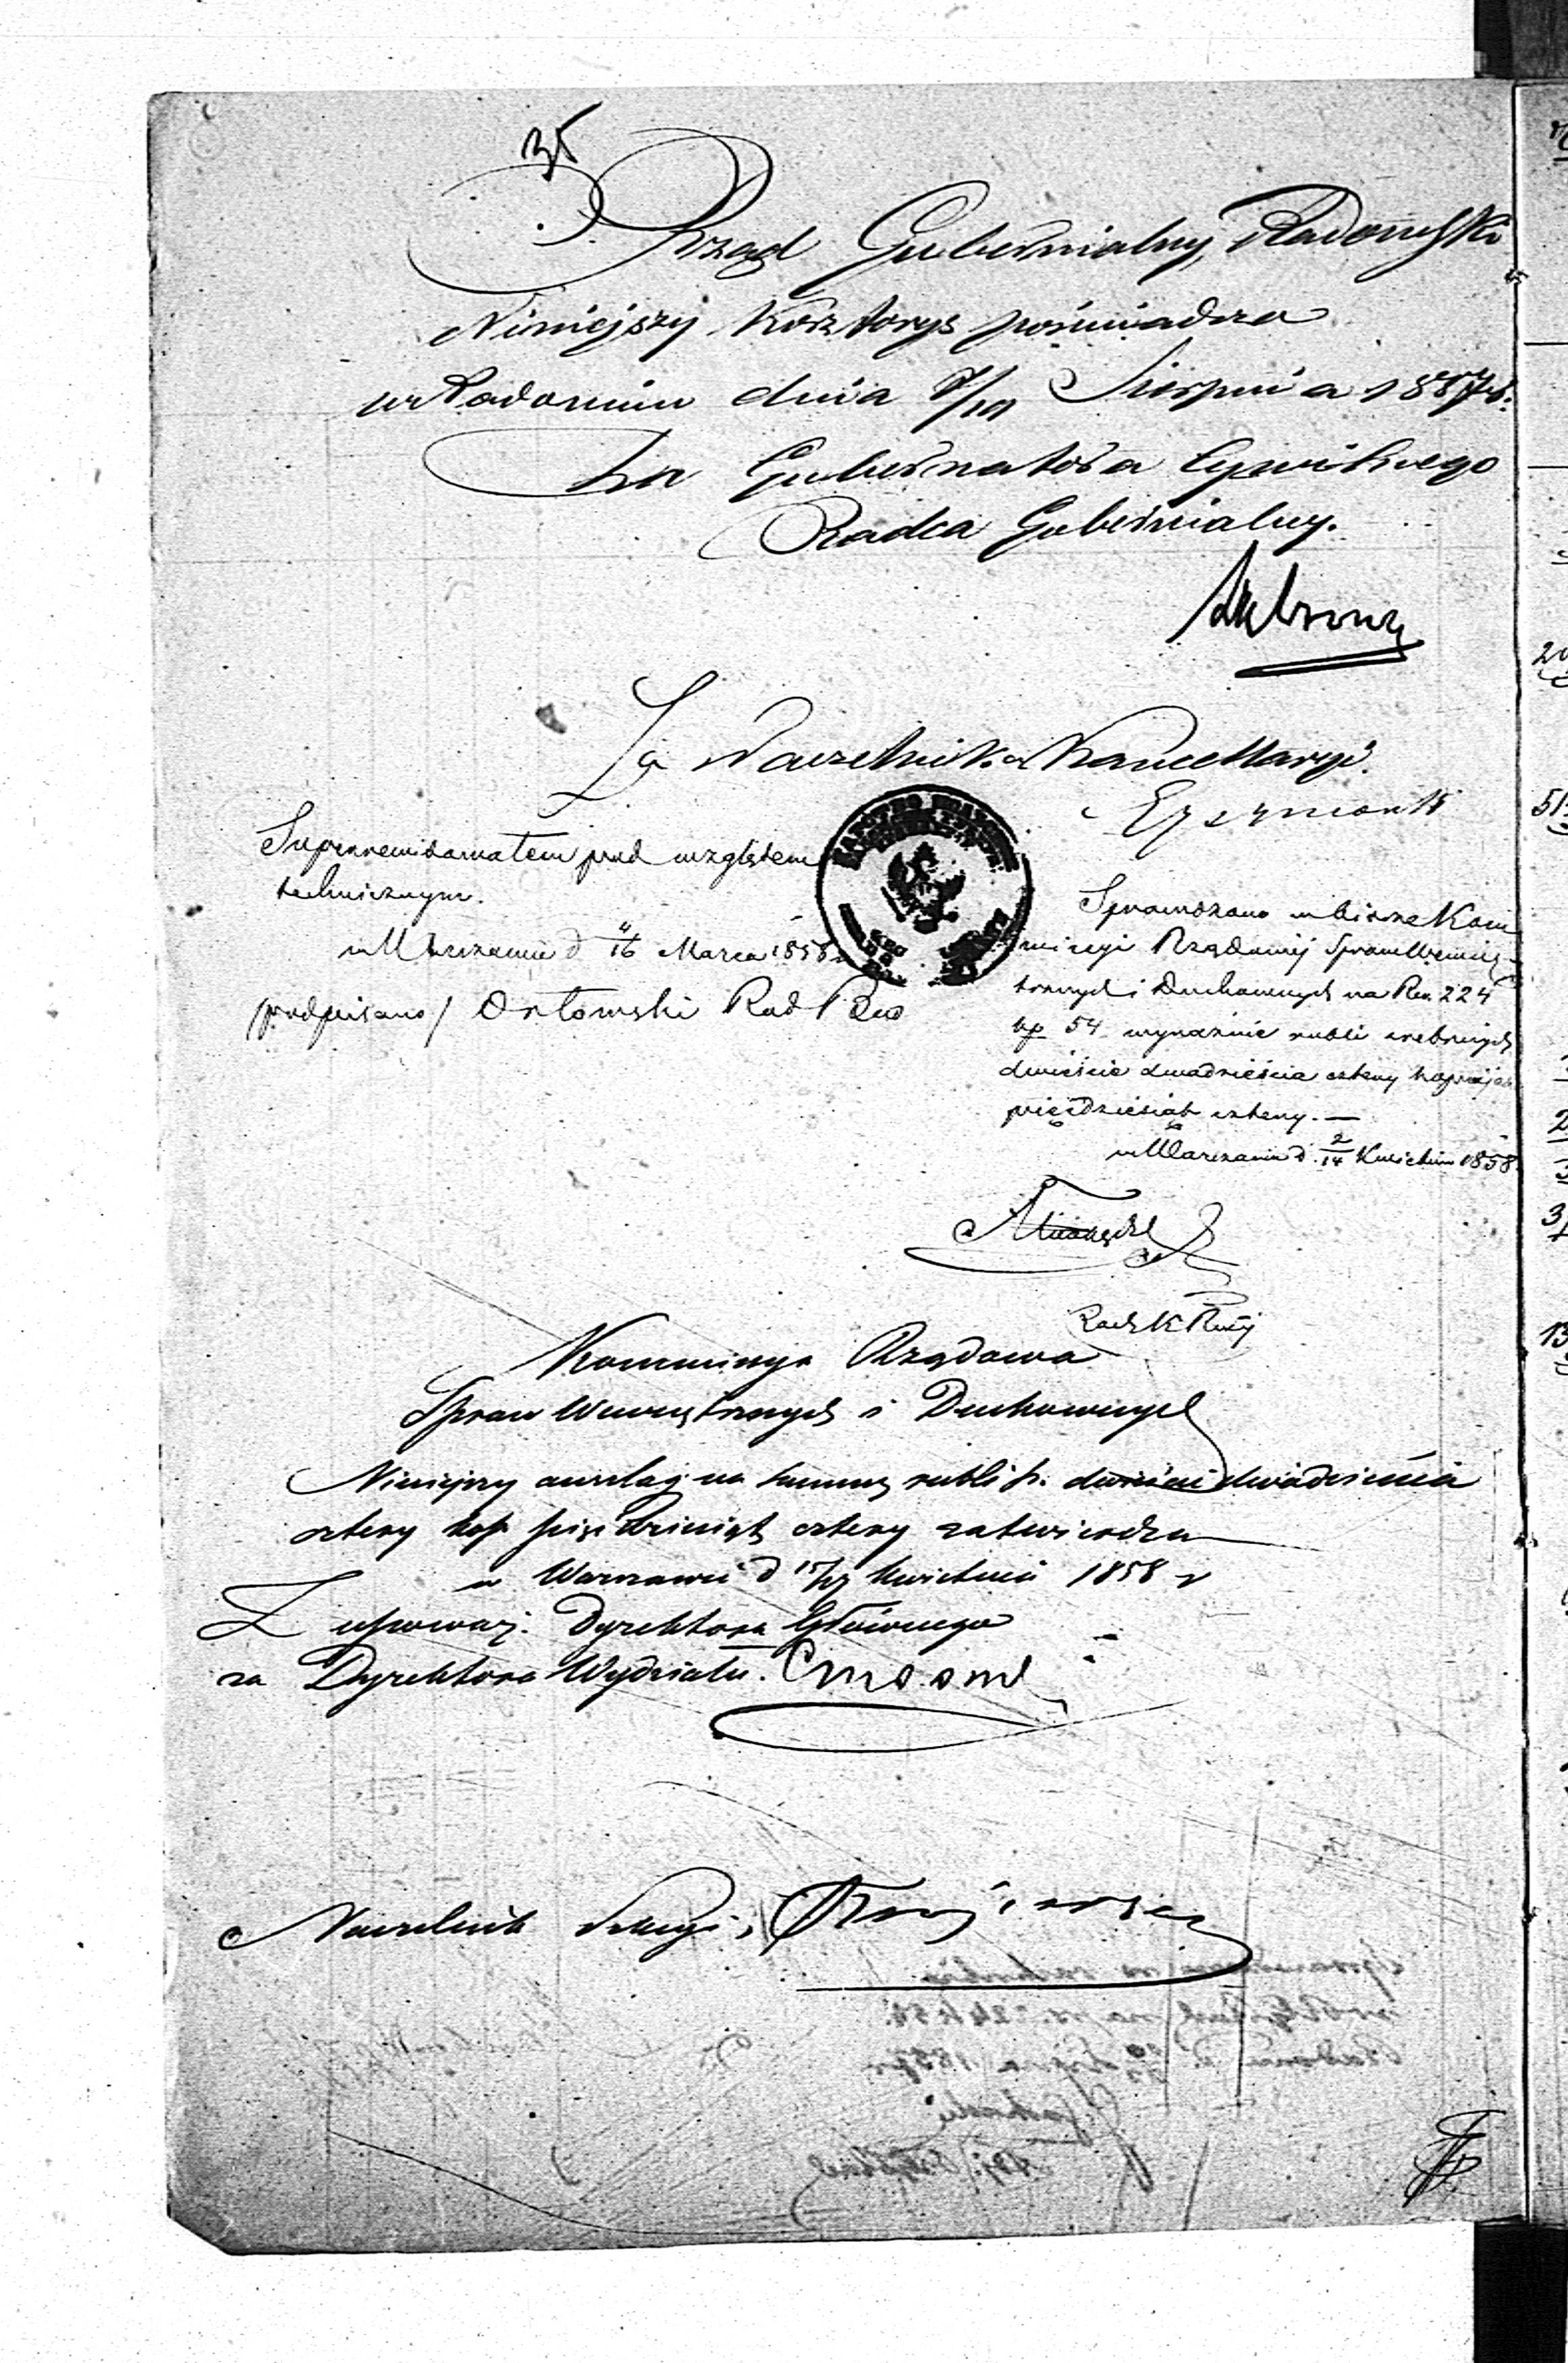 35
Rząd Gubernialny Radomski
Niniejszy Kosztorys poświadcza
w Radomiu dnia Sierpnia 1857 r.
Za Gubernatora Cywilnego
Radca Gubernialny.
Za Naczelnika Kancellaryi
Superrewidowałem pod względem
technicznym.
w Warszawie d 4/16 Marca 1858 r
/podpisano/ Orłowski Rad Bud
Sprawdzono w biórze Kom
missyi Rządowej Spraw Wewnę-
trznych i Duchownych na Rsr. 224
kp 54 wyraźnie rubli srebrnych
dwieście dwadzieścia cztery kopiejek
pięćdziesiąt cztery. —
w Warszawie d. 2/14 Kwietnia 1858
Kommissya Rządowa
Spraw Wewnętrznych i Duchownych
Niniejszy anszlag na summę rubli s. dwieście dwadzieścia
cztery kop pięćdziesiąt cztery zatwierdza
w Warszawie d 15/27 Kwietnia 1858 r
Z upoważ. Dyrektora Głównego
za Dyrektora Wydziału.
Naczelnik Sekcyi,